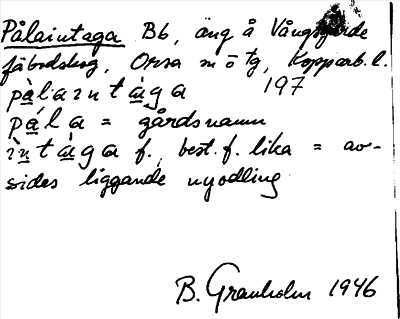 Pålaintaga Bb, äng å Vångsgärde
fäbodskog, Orsa sn ö tg, Kopparb. l.
pàlaıntàga 197
pàla = gårdsnamn
ìntàga f., best. f. lika = av-
sides liggande nyodling
B. Granholm 1946